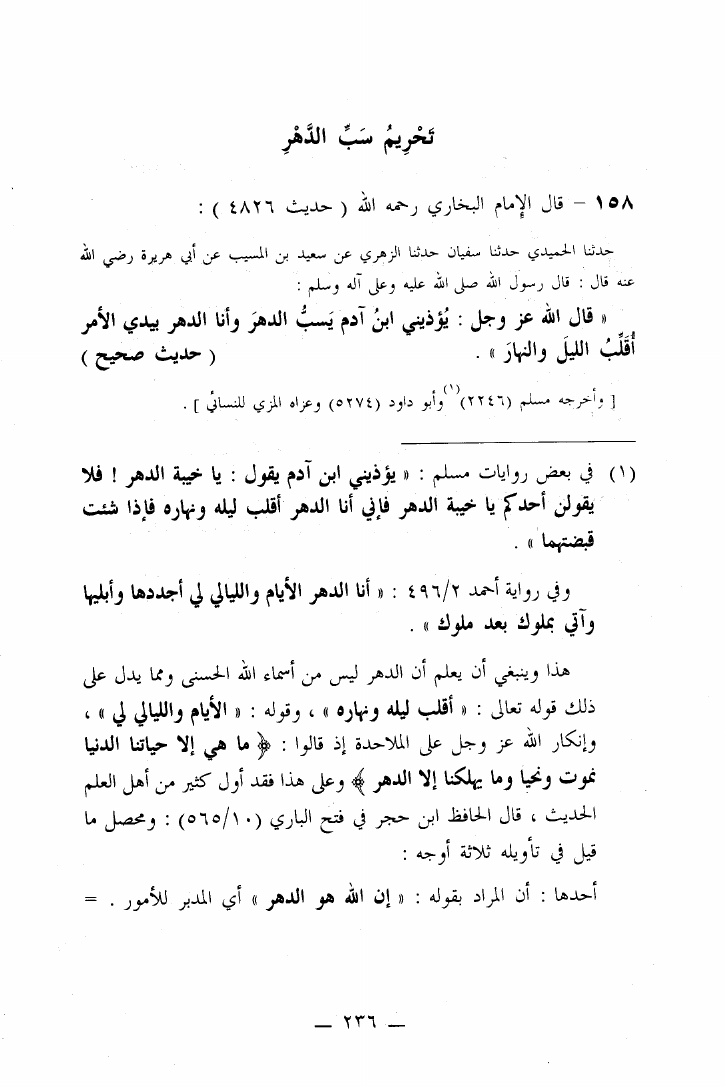 تَحْرِيمُ سَبِّ الدَّهْرِ
١٥٨ – قال الإمام البخاري رحمه الله ( حديث ٤٨٢٦ ) :
حدثنا الحميدي حدثنا سفيان حدثنا الزهري عن سعيد بن المسيب عن أبي هريرة رضي الله
عنه قال : قال رسول الله صلى الله عليه وعلى آله وسلم :
« قال الله عز وجل : يُؤذيني ابنُ آدم يَسبُّ الدهرَ وأنا الدهر بيدي الأمر
أُقَلِّبُ الليلَ والنهارَ » . ( حديث صحيح )
[ وأخرجه مسلم (٢٢٤٦)(١) وأبو داود (٥٢٧٤) وعزاه المزي للنسائي ] .
(١) في بعض روايات مسلم : « يؤذيني ابن آدم يقول : يا خيبة الدهر ! فلا
يقولن أحدكم يا خيبة الدهر فإني أنا الدهر أقلب ليله ونهاره فإذا شئت
قبضتهما » .
وفي رواية أحمد ٤٩٦/٢ : « أنا الدهر الأيام والليالي لي أجددها وأبليها
وآتي بملوك بعد ملوك » .
هذا وينبغي أن يعلم أن الدهر ليس من أسماء الله الحسنى ومما يدل على
ذلك قوله تعالى : « أقلب ليله ونهاره » ، وقوله : « الأيام والليالي لي » ،
وإنكار الله عز وجل على الملاحدة إذ قالوا : ﴿ ما هي إلا حياتنا الدنيا
نموت ونحيا وما يهلكنا إلا الدهر ﴾ وعلى هذا فقد أول كثير من أهل العلم
الحديث ، قال الحافظ ابن حجر في فتح الباري (٥٦٥/١٠) : ومحصل ما
قيل في تأويله ثلاثة أوجه :
أحدها : أن المراد بقوله : « إن الله هو الدهر » أي المدبر للأمور . =
— ٢٣٦ —